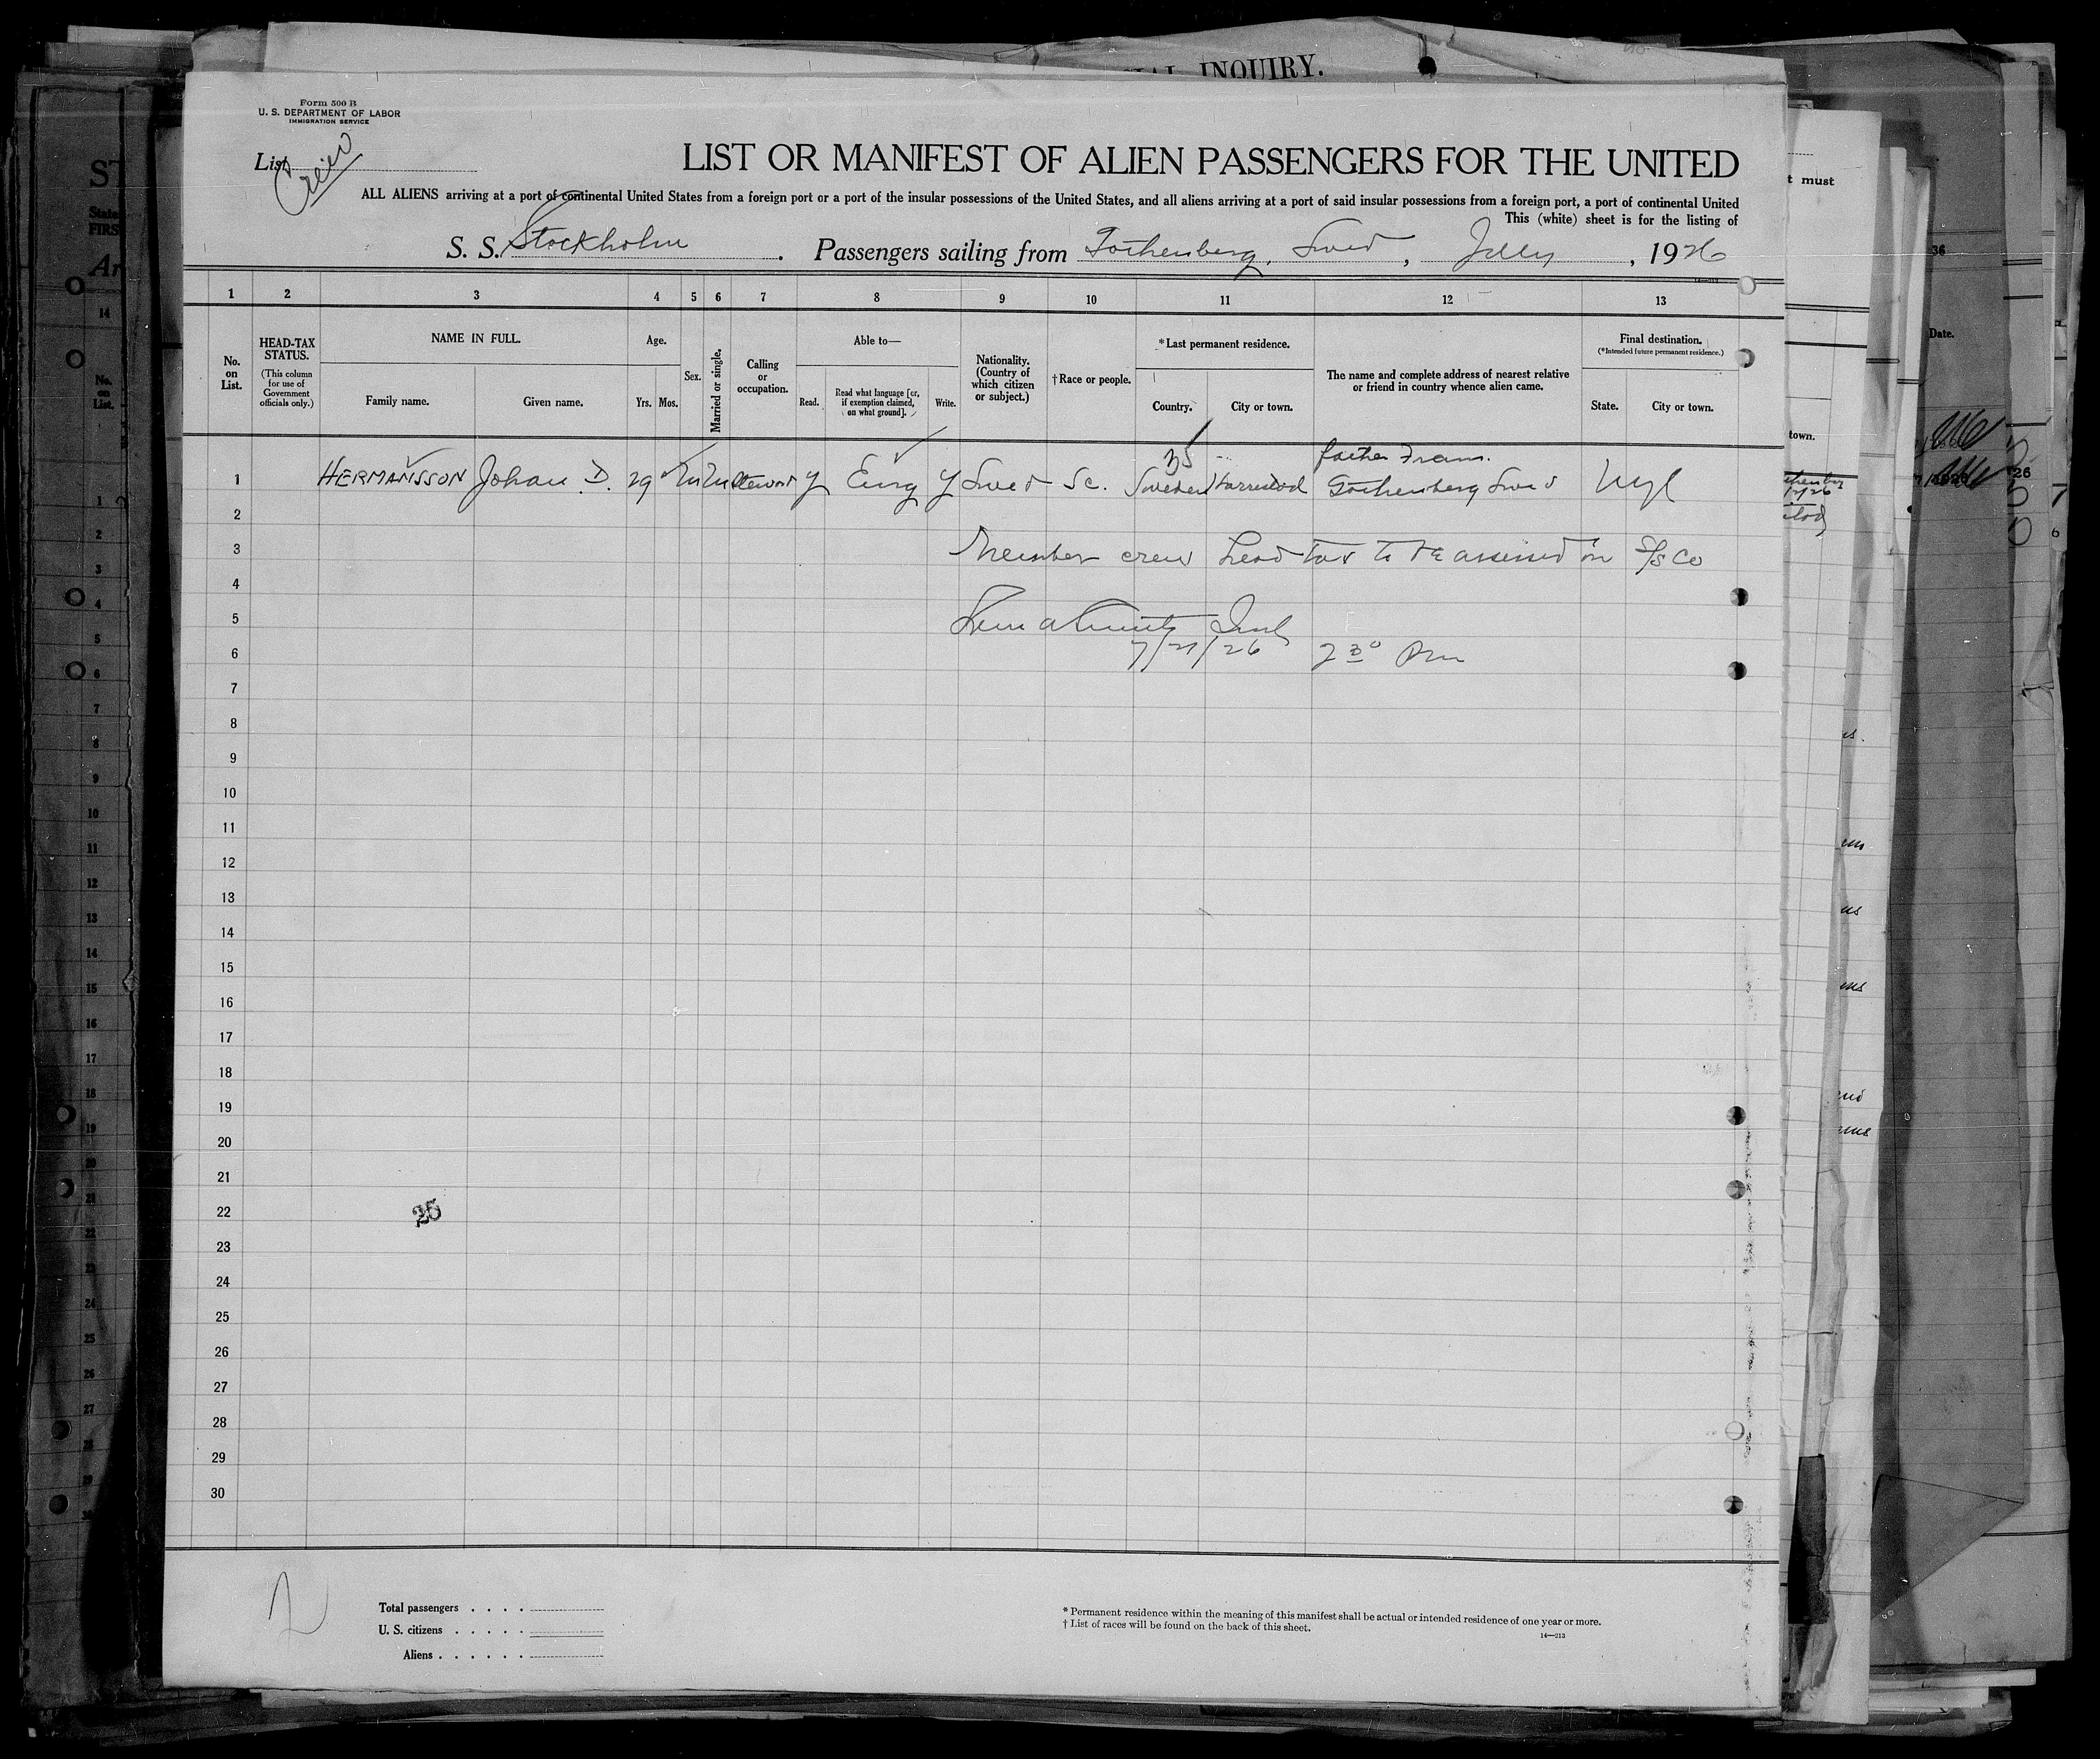 IAL INQUIRY.
Form 500 B
U. S. DEPARTMENT OF LABOR
IMMIGRATION SERVICE
List
Crew
LIST OR MANIFEST OF ALIEN PASSENGERS FOR THE UNITED
ALL ALIENS arriving at a port of continental United States from a foreign port or a port of the insular possessions of the United States, and all aliens arriving at a port of said insular possessions from a foreign port, a port of continental United
This (white) sheet is for the listing of
S. S. Stockholm. Passengers sailing from Gothenberg, Swed, July, 1926
1 2 3 4 5 6 7 8 9 10 11 12 13
No. on List.
HEAD-TAX STATUS.
(This column for use of Government officials only.)
NAME IN FULL.
Family name. Given name.
Age.
Yrs. Mos.
Sex.
Married or single.
Calling or occupation.
Able to—
Read. Read what language [or, if exemption claimed, on what ground]. Write.
Nationality. (Country of which citizen or subject.)
†Race or people.
*Last permanent residence.
Country. City or town.
The name and complete address of nearest relative or friend in country whence alien came.
Final destination.
(*Intended future permanent residence.)
State. City or town.
35 father Frans.
1 HERMANSSON Johan D. 29 M M Steward Y Eng Y Swed Sc. Sweden Gothenberg Swed NYC
2
3 Member crew head tax to be assessed on S/S Co
4
5
6 7/21/26 2 30 PM
7
8
9
10
11
12
13
14
15
16
17
18
19
20
21
22
25
23
24
25
26
27
28
29
30
2
Total passengers . . . .
U. S. citizens . . . . .
Aliens . . . . . .
* Permanent residence within the meaning of this manifest shall be actual or intended residence of one year or more.
† List of races will be found on the back of this sheet.
14—213
t must
town.
Date.